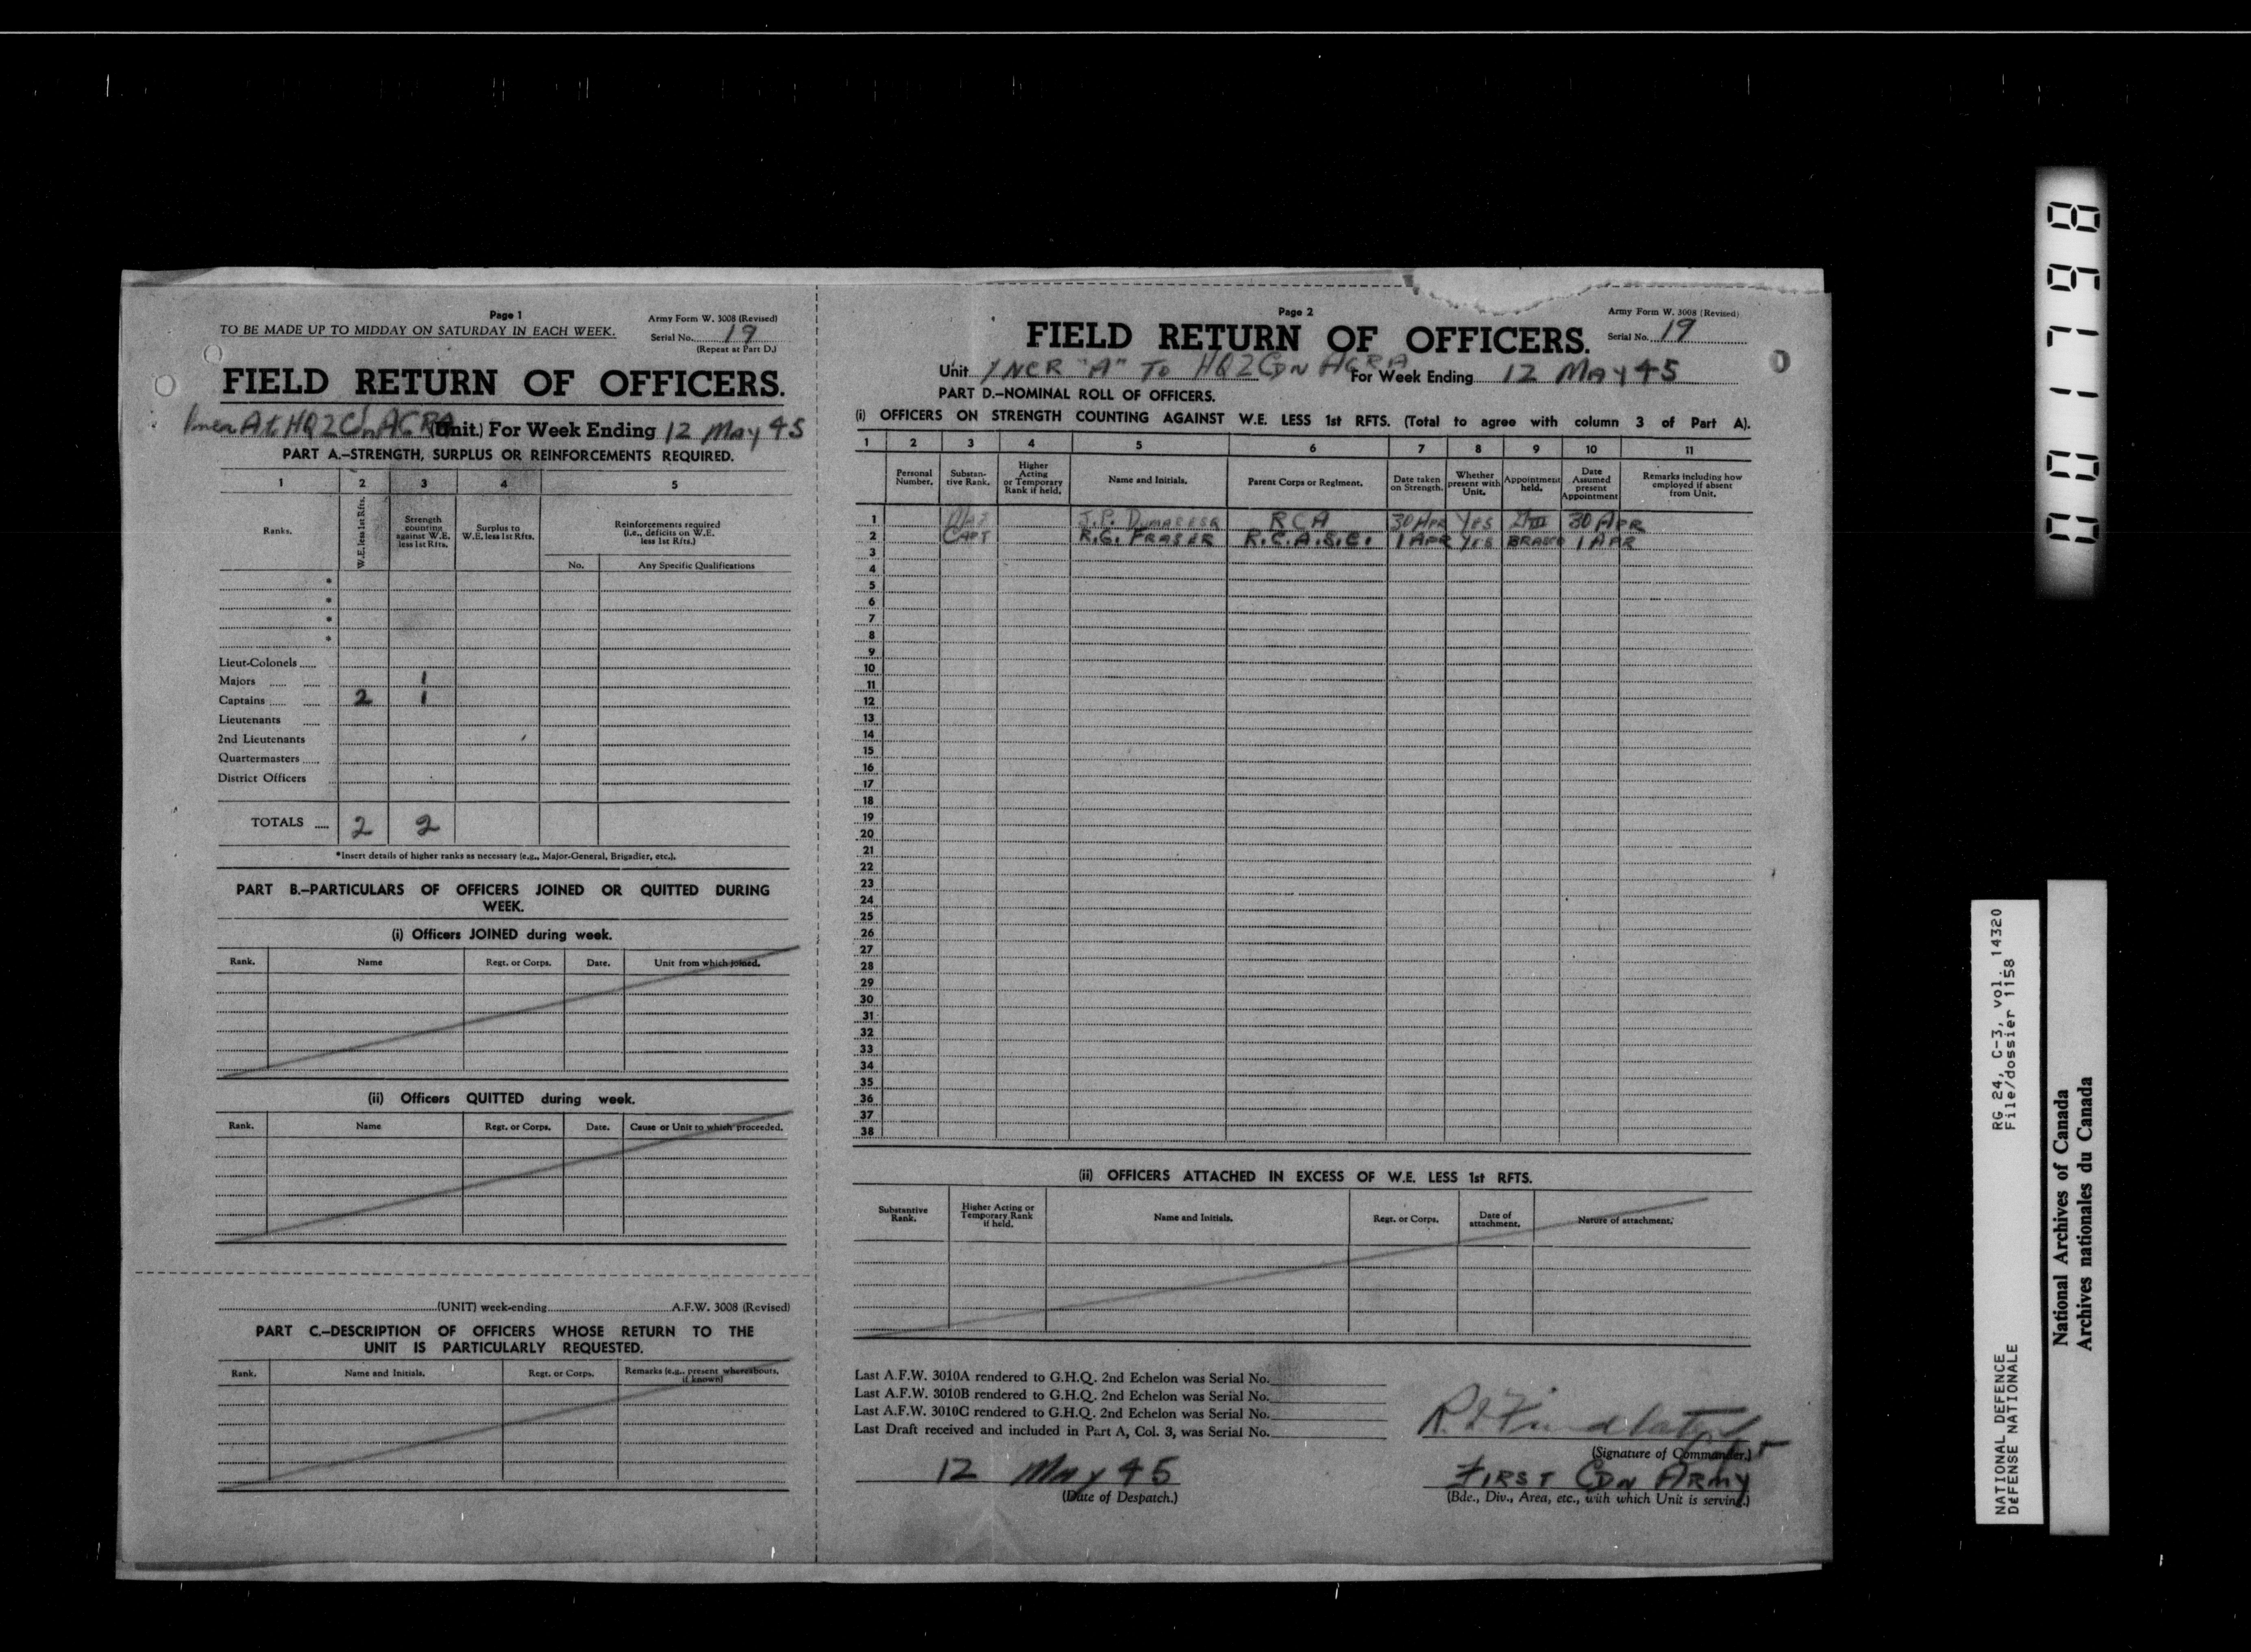 Page 1
TO BE MADE UP TO MIDDAY ON SATURDAY IN EACH WEEK.
Army Form W. 3008 (Revised)
Serial No. 19
(Repeat at Part D.)
FIELD RETURN OF OFFICERS.
HQ 2 Cdn AGRA (Unit.) For Week Ending 12 May 45
PART A.-STRENGTH, SURPLUS OR REINFORCEMENTS REQUIRED.
1 2 3 4 5
Ranks. W.E. less 1st Rfts. Strength counting against W.E. less 1st Rfts. Surplus to W.E. less 1st Rfts. Reinforcements required (i.e., deficits on W.E. less 1st Rfts.)
No. Any Specific Qualifications
*
*
*
*
Lieut-Colonels
Majors 1
Captains 2 1
Lieutenants
2nd Lieutenants
Quartermasters
District Officers
TOTALS 2 2
*Insert details of higher ranks as necessary (e.g., Major-General, Brigadier, etc.).
PART B.-PARTICULARS OF OFFICERS JOINED OR QUITTED DURING
WEEK.
(i) Officers JOINED during week.
Rank. Name Regt. or Corps. Date. Unit from which joined.
(ii) Officers QUITTED during week.
Rank. Name Regt. or Corps. Date. Cause or Unit to which proceeded.
(UNIT) week-ending A.F.W. 3008 (Revised)
PART C.-DESCRIPTION OF OFFICERS WHOSE RETURN TO THE
UNIT IS PARTICULARLY REQUESTED.
Rank. Name and Initials. Regt. or Corps. Remarks (e.g., present whereabouts, if known)
Page 2
Army Form W. 3008 (Revised)
FIELD RETURN OF OFFICERS.
Serial No. 19
Unit "A" TO HQ 2 CDN AGRA For Week Ending 12 MAY 45
PART D.-NOMINAL ROLL OF OFFICERS.
(i) OFFICERS ON STRENGTH COUNTING AGAINST W.E. LESS 1st RFTS. (Total to agree with column 3 of Part A).
1 2 3 4 5 6 7 8 9 10 11
Personal Number. Substantive Rank. Higher Acting or Temporary Rank if held. Name and Initials. Parent Corps or Regiment. Date taken on Strength. Whether present with Unit. Appointment held. Date Assumed present Appointment Remarks including how employed if absent from Unit.
1 MAJ J.P. RCA 30 APR YES 30 APR
2 CAPT R.G. FRASER R.C.A.S.C. 1 APR YES 1 APR
3
4
5
6
7
8
9
10
11
12
13
14
15
16
17
18
19
20
21
22
23
24
25
26
27
28
29
30
31
32
33
34
35
36
37
38
(ii) OFFICERS ATTACHED IN EXCESS OF W.E. LESS 1st RFTS.
Substantive Rank. Higher Acting or Temporary Rank if held. Name and Initials. Regt. or Corps. Date of attachment. Nature of attachment.
Last A.F.W. 3010A rendered to G.H.Q. 2nd Echelon was Serial No.
Last A.F.W. 3010B rendered to G.H.Q. 2nd Echelon was Serial No.
Last A.F.W. 3010C rendered to G.H.Q. 2nd Echelon was Serial No.
Last Draft received and included in Part A, Col. 3, was Serial No.
(Signature of Commander.)
12 May 45
(Date of Despatch.)
FIRST CDN ARMY
(Bde., Div., Area, etc., with which Unit is serving.)
001798
NATIONAL DEFENCE RG 24, C-3, vol. 14320
DÉFENSE NATIONALE File/dossier 1158
National Archives of Canada
Archives nationales du Canada